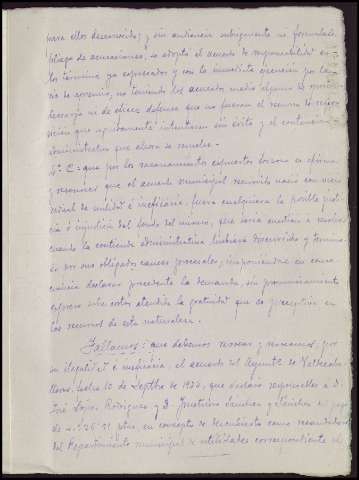 para ellos desconocido; y sin audiencia subsiguiente ni formulado
pliego de acusaciones, se adopta el acuerdo de responsabilidad en
los términos ya expresados y con la inmediata ejecución por la
vía de apremio, no teniendo los acusados medio alguno de
descargo ni de eficaz defensa que no fueran el recurso de reposición
que seguramente intentaron sin éxito y el contencioso
administrativo que ahora se resuelve.
que por los razonamientos expuestos
y reconocer que el acuerdo municipal recurrido nació con vicio
de nulidad é ineficacia, fuera cualquiera la posible justicia
ó injusticia del fondo del mismo, que sería cuestión a resolver
cuando la contienda administrativa hubiera discurrido y terminado
por sus obligados cauces procesales; imponiéndose en consecuencia
declarar procedente la demanda, sin pronunciamiento
expreso sobre costas atendida la gratuidad que es preceptiva en
los recursos de esta naturaleza.
Fallamos: que debemos revocar y revocamos, por
su ilegalidad é ineficacia, el acuerdo del Ayuntº de
fecha 10 de Septbre de que declaró responsables a D.
José López Rodríguez y D. Sánchez y Sánchez al pago
de ptas, en concepto de como recaudadores
del Repartimiento municipal de utilidades correspondiente al